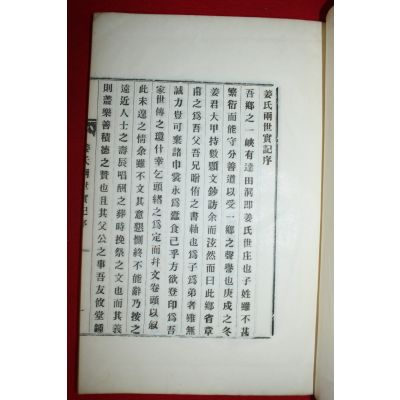 姜氏兩世實記序
吾鄉之一峽有達田洞即姜氏世庄也子姓雖不甚
繁衍而能守分善道以受一鄉之聲譽也庚戌之冬
姜君大甲持數顆文鈔訪余而泫然而曰此鄉省章
甫之爲吾父吾兄賻侑之書軸也爲子爲弟者雖無
誠力豈可棄諸巾裳永爲蠹食已乎方欲登印爲吾
家世傳之瓊什幸乞頭緖之爲定而幷文卷頭以叙
此未遑之情余雖不文其意懇惻終不能辭乃按之
遠近人士之壽辰唱酬之葬時挽祭之文也而其義
則蓋樂善積德之贊也且其父公之事吾友攸堂鍾
姜氏兩世實記序